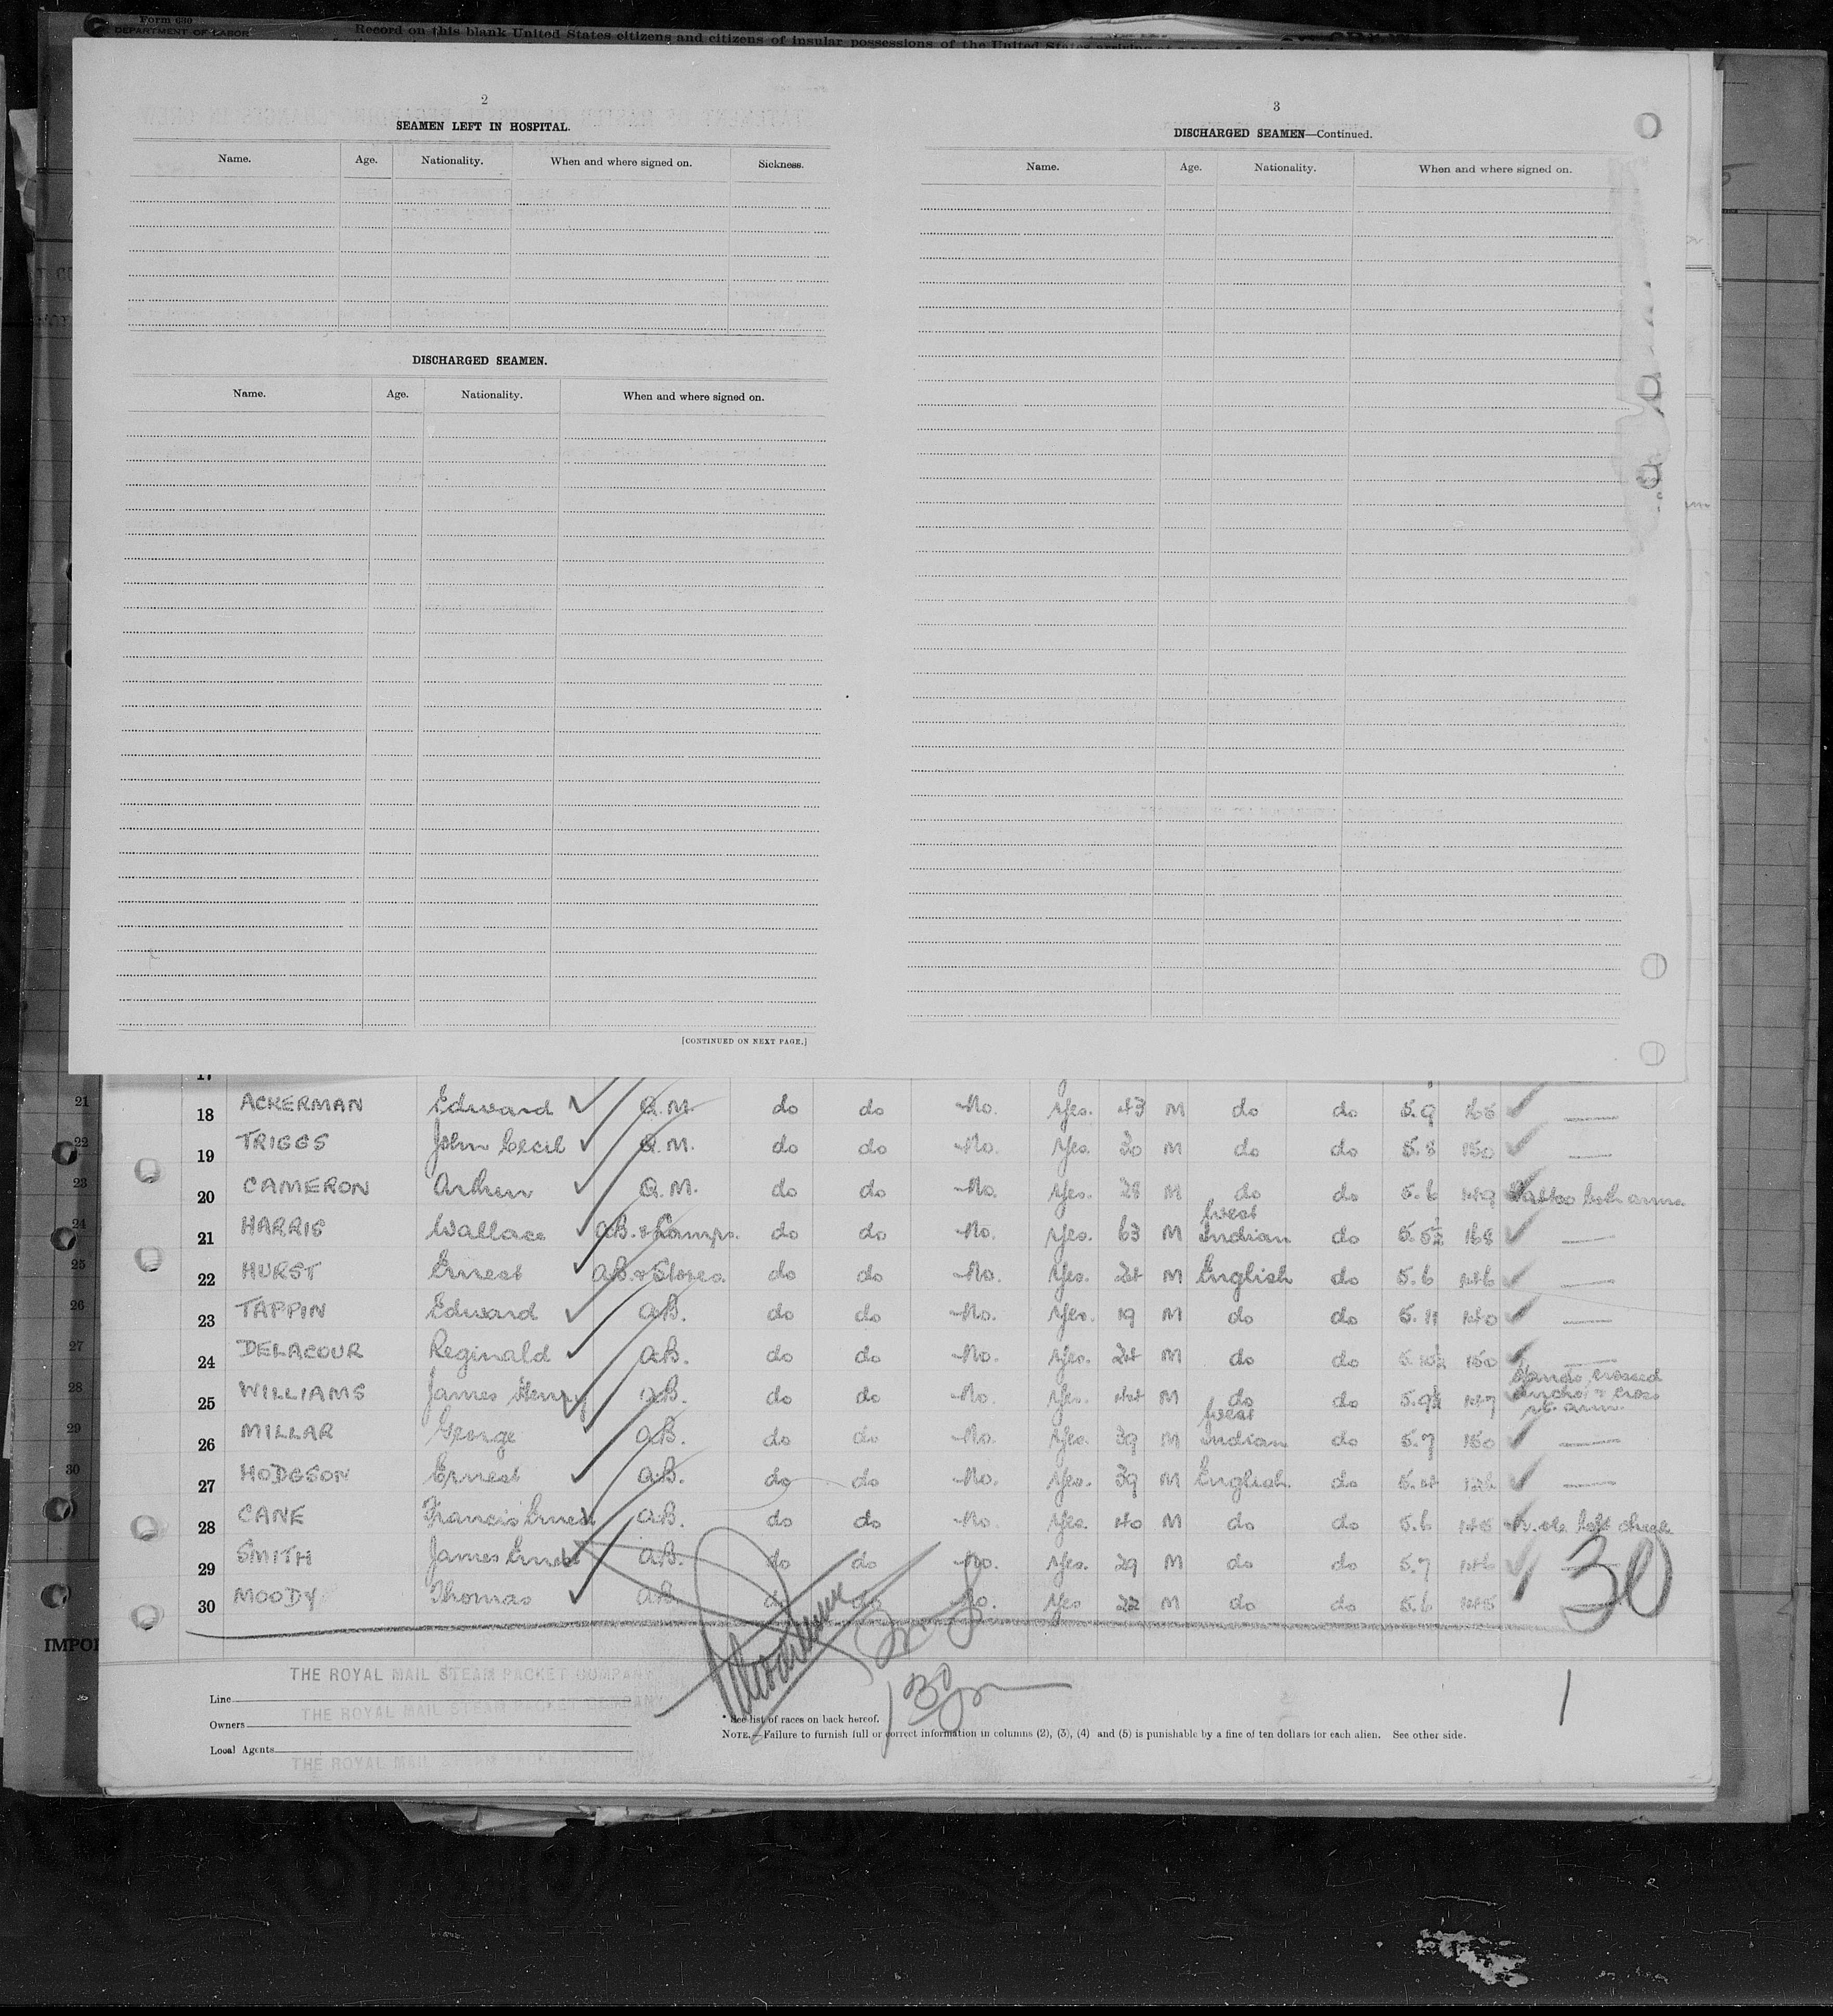 Form 680
DEPARTMENT OF LABOR
Record on this blank United States citizens and citizens of insular possessions of the United States arriving
2
SEAMEN LEFT IN HOSPITAL.
Name. Age. Nationality. When and where signed on. Sickness.
DISCHARGED SEAMEN.
Name. Age. Nationality. When and where signed on.
[CONTINUED ON NEXT PAGE.]
3
DISCHARGED SEAMEN—Continued.
Name. Age. Nationality. When and where signed on.
17
18 ACKERMAN Edward Q.M. do do No. Yes. 43 M do do 5.9 165
19 TRIGGS John Cecil Q.M. do do No. Yes. 30 M do do 5.8 150
20 CAMERON Arthur Q.M. do do No. Yes. 28 M do do 5.6 149 Tattoo both arms
21 HARRIS Wallace A.B. & Lamps. do do No. Yes. 63 M West Indian do 5.5½ 168
22 HURST Ernest A.B. & Stores. do do No. Yes. 24 M English do 5.6 146
23 TAPPIN Edward A.B. do do No. Yes. 19 M do do 5.11 140
24 DELACOUR Reginald A.B. do do No. Yes. 24 M do do 5.10½ 150
25 WILLIAMS James Henry A.B. do do No. Yes. 44 M do do 5.9½ 147 Hands crossed anchor & cross rt. arm.
26 MILLAR George A.B. do do No. Yes. 39 M West Indian do 5.7 150
27 HODGSON Ernest A.B. do do No. Yes. 39 M English do 5.4 126
28 CANE Francis Ernest A.B. do do No. Yes. 40 M do do 5.6 145 Mole left cheek
29 SMITH James Ernest A.B. do do No. Yes. 29 M do do 5.7 146
30 MOODY Thomas A.B. do do No. Yes 22 M do do 5.6 145
30
1
130
THE ROYAL MAIL STEAM PACKET COMPANY
Line
THE ROYAL MAIL STEAM PACKET COMPANY
Owners
Local Agents
THE ROYAL MAIL STEAM
* See list of races on back hereof.
NOTE.—Failure to furnish full or correct information in columns (2), (3), (4) and (5) is punishable by a fine of ten dollars for each alien. See other side.
21
22
23
24
25
26
27
28
29
30
IMPO